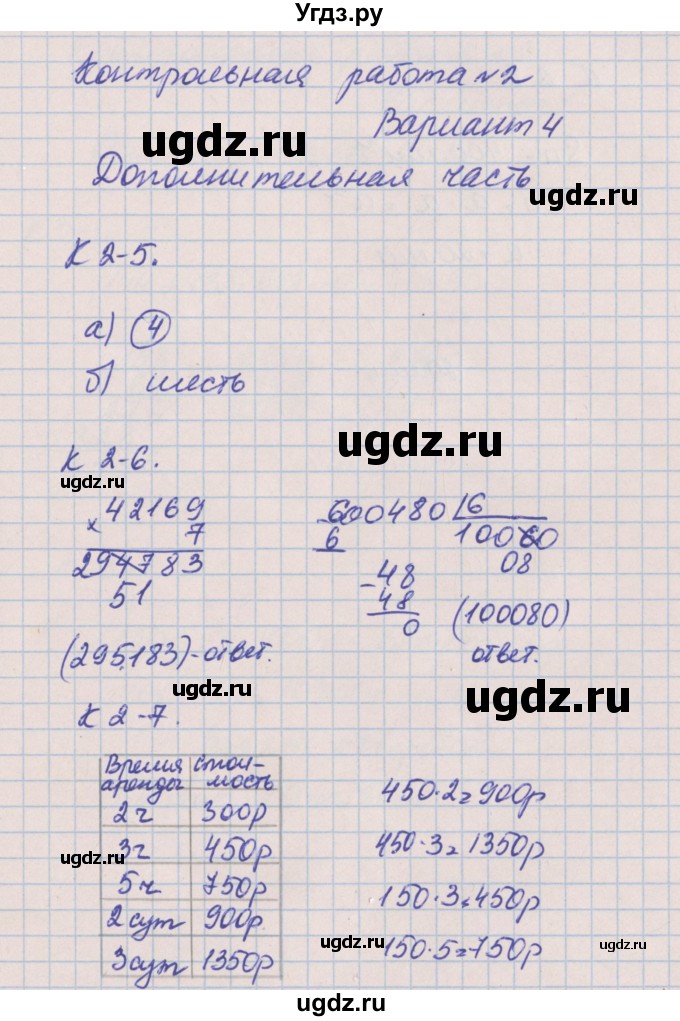 Угдз.ру
Контрольная работа №2
Вариант 4
ugdz.ru
Дополнительная часть
ugdz.ru
К 2-5.
а) 4
б) шесть
ugdz.ru
К 2-6.
ugdz.ru
× 42169
7
294783
51
(295183)-ответ.
600480 6
6
- 48
48
0
10060
08
(100080)
ответ.
ugdz.ru
ugdz.ru
К 2-7.
Время аренды
Стои-мость
2ч 300р
3ч 450р
5ч 750р
2 сут 900р.
3 сут 1350р
450·2=900р
450·3=1350р
150·3=450р
150·5=750р
ugdz.ru
ugdz.ru
ugdz.ru
ugdz.ru